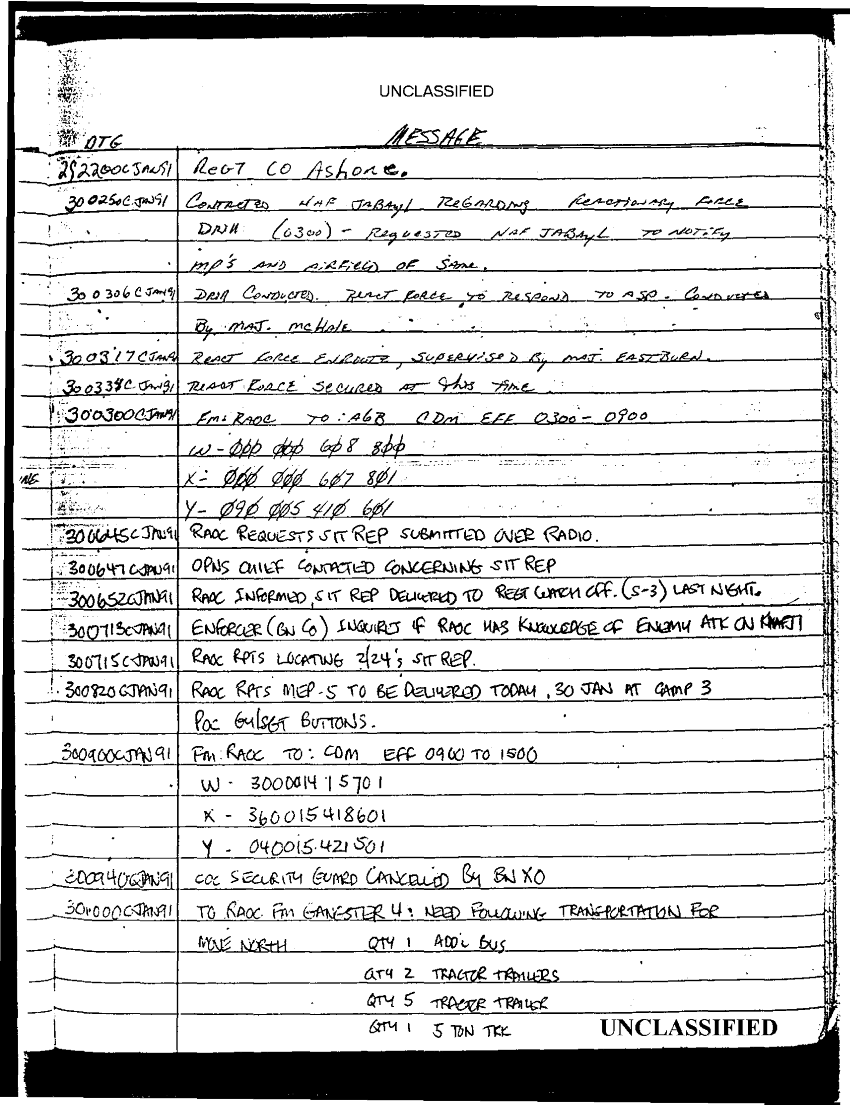 UNCLASSIFIED
DTG MESSAGE
292200C JAN91 REGT CO AShore.
300250C JAN91 CONTACTED NAF JABAYL REGARDING REACTIONARY FORCE
DRILL (0300) - REQUESTED NAF JABAYL TO NOTIFY
MP'S AND AIRFIELD OF SAME.
300306C JAN91 DRILL CONDUCTED. REACT FORCE TO RESPOND TO ASP. CONDUCTED
By MAJ. McHale
300317C JAN91 REACT FORCE ENROUTE, SUPERVISED By MAJ. EASTBURN.
300338C JAN91 REACT FORCE SECURED AT this TIME
300300C JAN91 Fm: RAOC TO: CDM EFF 0300-0900
W - 000 000 608 800
X - 000 000 607 801
NE
Y - 090 005 410 601
300645C JAN91 RAOC REQUESTS SIT REP SUBMITTED OVER RADIO.
300647C JAN91 OPNS CHIEF CONTACTED CONCERNING SIT REP
300652C JAN91 RAOC INFORMED, SIT REP DELIVERED TO REGT WATCH OFF. (S-3) LAST NIGHT.
300713C JAN91 ENFORCER (BN CO) INQUIRES IF RAOC HAS KNOWLEDGE OF ENEMY ATK ON KHAFJI
300715C JAN91 RAOC RPTS LOCATING 2/24's SIT REP.
300820C JAN91 RAOC RPTS MEP-5 TO BE DELIVERED TODAY, 30 JAN AT CAMP 3
POC GY/SGT BUTTONS.
300900C JAN91 Fm: RAOC TO: CDM EFF 0900 TO 1500
W - 300001415701
X - 360015418601
Y - 040015421501
300940C JAN91 COC SECURITY GUARD CANCELLED By BN XO
301000C JAN91 TO RAOC FM GANGSTER 4: NEED FOLLOWING TRANSPORTATION FOR
MOVE NORTH QTY 1 ADD'L BUS
QTY 2 TRACTOR TRAILERS
QTY 5 TRACTOR TRAILER
QTY 1 5 TON TRK UNCLASSIFIED